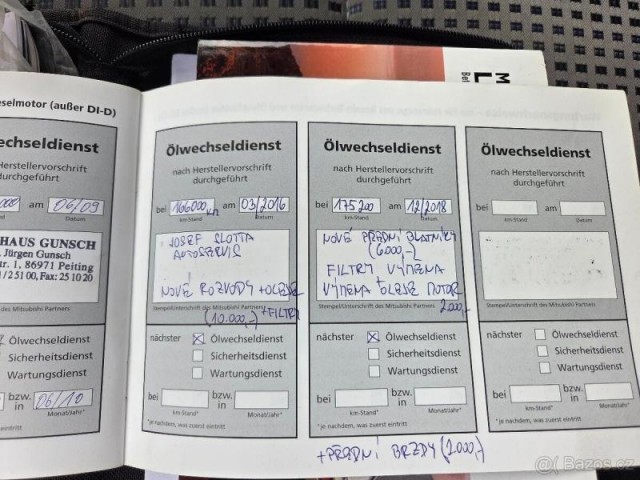 M
L
Bei
eselmotor (außer DI-D)
echseldienst
Herstellervorschrift
durchgeführt
000 am 06/09
Datum
HAUS GUNSCH
. Jürgen Gunsch
str. 1, 86971 Peiting
/ 2 51 00, Fax: 25 10 20
des Mitsubishi Partners
Ölwechseldienst
Sicherheitsdienst
Wartungsdienst
bzw. in 06/10
Monat/Jahr*
Ölwechseldienst
nach Herstellervorschrift
durchgeführt
bei 166000 km am 03/2016
km-Stand Datum
JOSEF SLOTTA
AUTOSERVIS
NOVÉ ROZVODY + OLEJE
Stempel/Unterschrift des Mitsubishi Partners
(10.000,-) + FILTRY
nächster Ölwechseldienst
Sicherheitsdienst
Wartungsdienst
bei bzw. in
km-Stand* Monat/Jahr*
*je nachdem, was zuerst eintritt
Ölwechseldienst
nach Herstellervorschrift
durchgeführt
bei 175200 am 12/2018
km-Stand Datum
NOVÉ PŘEDNÍ BLATNÍKY
(6000,-)
FILTRY VÝMĚNA
VÝMĚNA OLEJE MOTOR
Stempel/Unterschrift des Mitsubishi Partners
2000,-
nächster Ölwechseldienst
Sicherheitsdienst
Wartungsdienst
bei bzw. in
km-Stand* Monat/Jahr*
*je nachdem, was zuerst eintritt
+ PŘEDNÍ BRZDY (2000,-)
Ölwechseldienst
nach Herstellervorschrift
durchgeführt
bei am
km-Stand Datum
Stempel/Unterschrift des Mitsubishi Partners
nächster Ölwechseldienst
Sicherheitsdienst
Wartungsdienst
bei bzw. in
km-Stand* Monat/Jahr*
*je nachdem, was zuerst eintritt
Bazos.cz